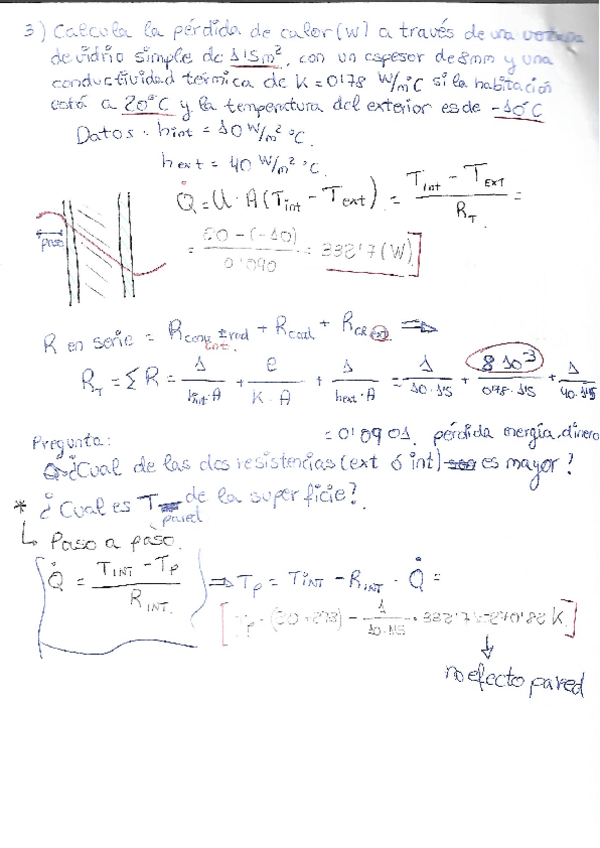 3) Calcula la pérdida de calor (W) a través de una ventana
de vidrio simple de 1'5m², con un espesor de 8mm y una
conductividad térmica de K = 0'78 W/m°C si la habitación
está a 20°C y la temperatura del exterior es de -10°C
Datos: hint = 10 W/m² °C.
hext = 40 W/m² °C.
Q̇ = U · A (Tint - Text) = (Tint - TEXT) / RT =
= (20 - (-10)) / 0'090 = 332'7 (W)
paso
R en serie = Rconv int + rad + Rcond + RCR ext ⇒
RT = ΣR = 1/(hint·A) + e/(K·A) + 1/(hext·A) = 1/(10·1'5) + 8·10³/(0'78·1'5) + 1/(40·1'5)
= 0'0901. pérdida energía, dinero
Pregunta:
¿Cual de las dos resistencias (ext ó int) es mayor?
* ¿Cual es T pared de la superficie?
↳ Paso a paso.
Q̇ = (TINT - Tp) / RINT. ⇒ Tp = TINT - RINT · Q̇ =
[Tp = (20 + 273) - 1/(10·1'5) · 332'7 = 270'82 K]
no efecto pared